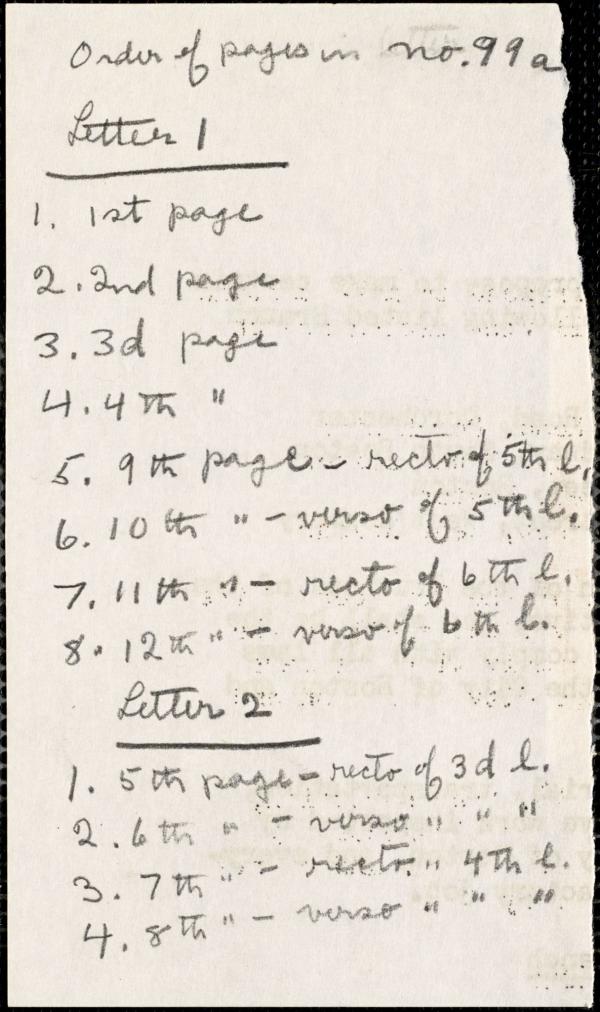 Order of pages in no. 99a
Letter 1
1. 1st page
2. 2nd page
3. 3d page
4. 4th "
5. 9th page - recto of 5th l.
6. 10th " - verso of 5th l.
7. 11th " - recto of 6th l.
8. 12th " - verso of 6th l.
Letter 2
1. 5th page - recto of 3d l.
2. 6th " - verso " " "
3. 7th " - recto " 4th l.
4. 8th " - verso " " "